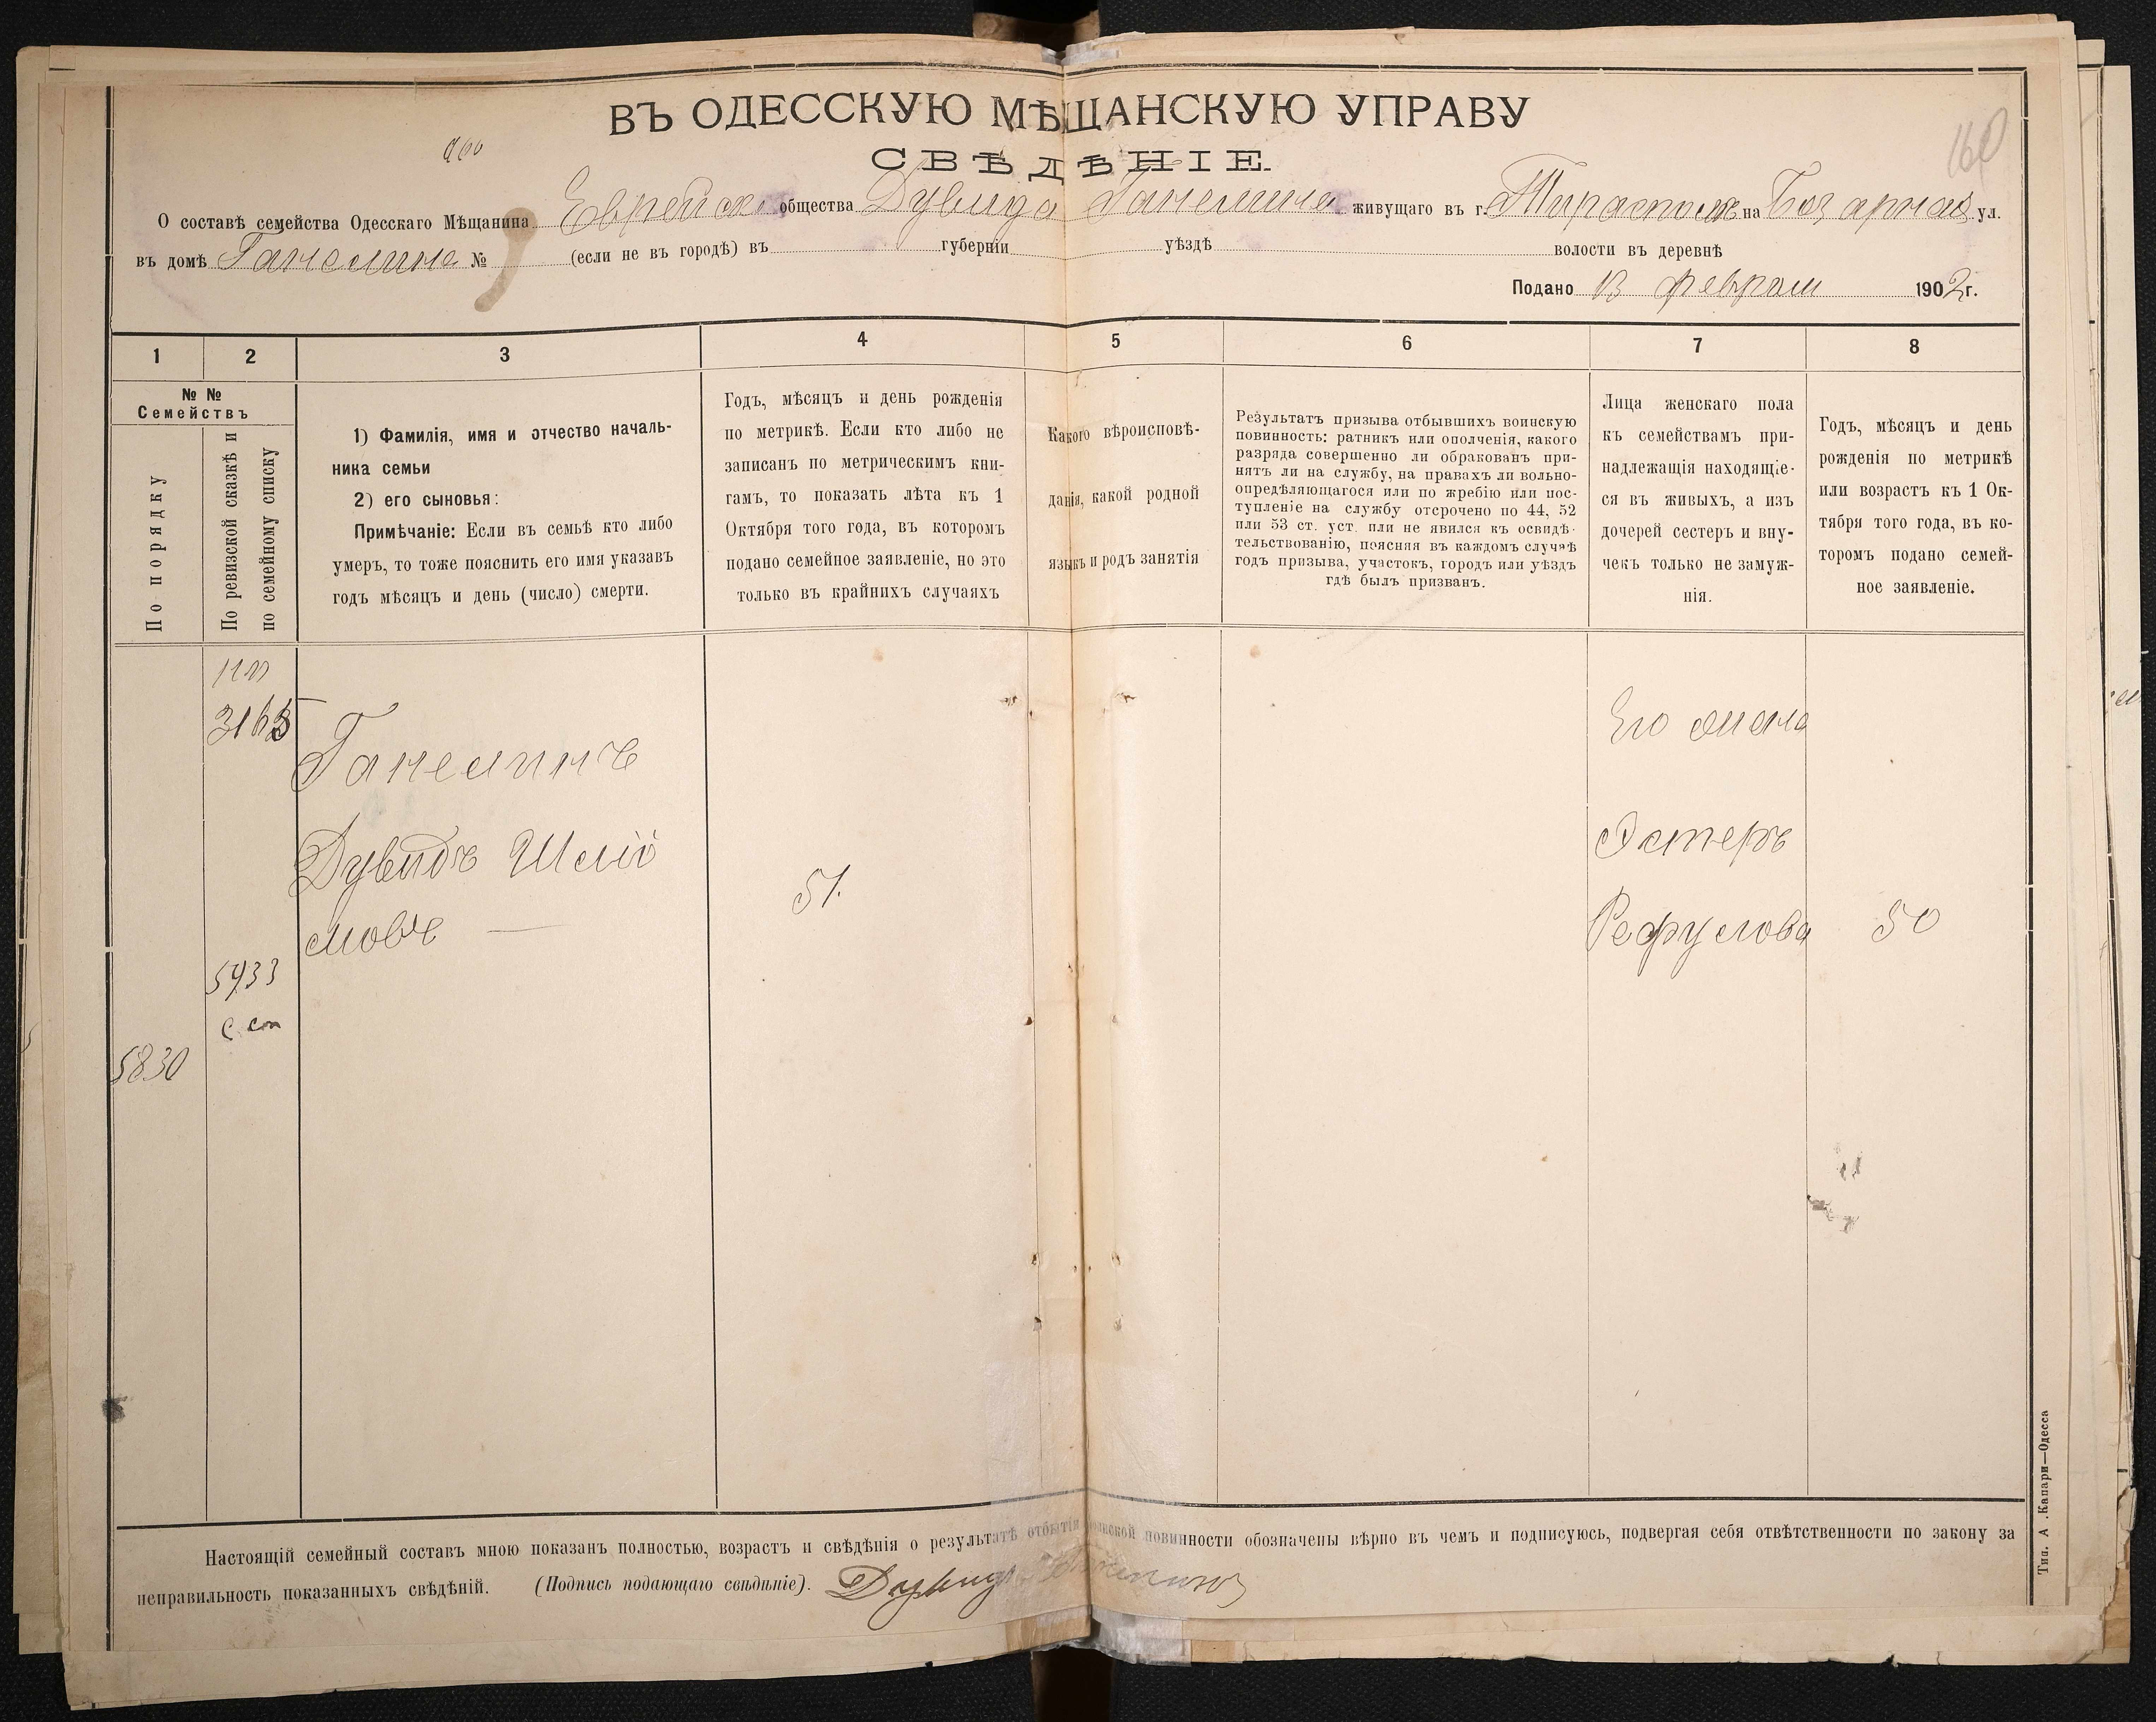 ВЪ ОДЕССКУЮ МѢЩАНСКУЮ УПРАВУ
160
СВѢДѢНІЕ.
О составѣ семейства Одесскаго Мѣщанина Еврейск. общества Дувида Ганелина живущаго въ г. Тирасполѣ на Базарной ул.
въ домѣ Ганелина № (если не въ городѣ) въ губерніи уѣздѣ волости въ деревнѣ
Подано 13 февраля 1902 г.
1 2 3 4 5 6 7 8
№ №
Семействъ
По порядку
По ревизской сказкѣ и
по семейному списку
1) Фамилія, имя и отчество началь-
ника семьи
2) его сыновья:
Примѣчаніе: Если въ семьѣ кто либо
умеръ, то тоже пояснить его имя указавъ
годъ мѣсяцъ и день (число) смерти.
Годъ, мѣсяцъ и день рожденія
по метрикѣ. Если кто либо не
записанъ по метрическимъ кни-
гамъ, то показать лѣта къ 1
Октября того года, въ которомъ
подано семейное заявленіе, но это
только въ крайнихъ случаяхъ
Какого вѣроисповѣ-
данія, какой родной
языкъ и родъ занятія
Результатъ призыва отбывшихъ воинскую
повинность: ратникъ или ополченія, какого
разряда совершенно ли обракованъ при-
нятъ ли на службу, на правахъ ли вольно-
опредѣляющагося или по жребію или пос-
тупленіе на службу отсрочено по 44, 52
или 53 ст. уст. или не явился къ освидѣ-
тельствованію, поясняя въ каждомъ случаѣ
годъ призыва, участокъ, городъ или уѣздъ
гдѣ былъ призванъ.
Лица женскаго пола
къ семействамъ при-
надлежащія находящіе-
ся въ живыхъ, а изъ
дочерей сестеръ и вну-
чекъ только не замуж-
нія.
Годъ, мѣсяцъ и день
рожденія по метрикѣ
или возрастъ къ 1 Ок-
тября того года, въ ко-
торомъ подано семей-
ное заявленіе.
3165
Ганелинъ
Дувидъ Шліо
мовъ —
51.
Его жена
Эстеръ
Рефулова
50
5933
с. сп
5830
Настоящій семейный составъ мною показанъ полностью, возрастъ и свѣдѣнія о результатѣ отбытія воинской повинности обозначены вѣрно въ чемъ и подписуюсь, подвергая себя отвѣтственности по закону за
неправильность показанныхъ свѣдѣній. (Подпись подающаго свѣдѣніе). Дувид Ганелинъ
Тип. А .Капари—Одесса